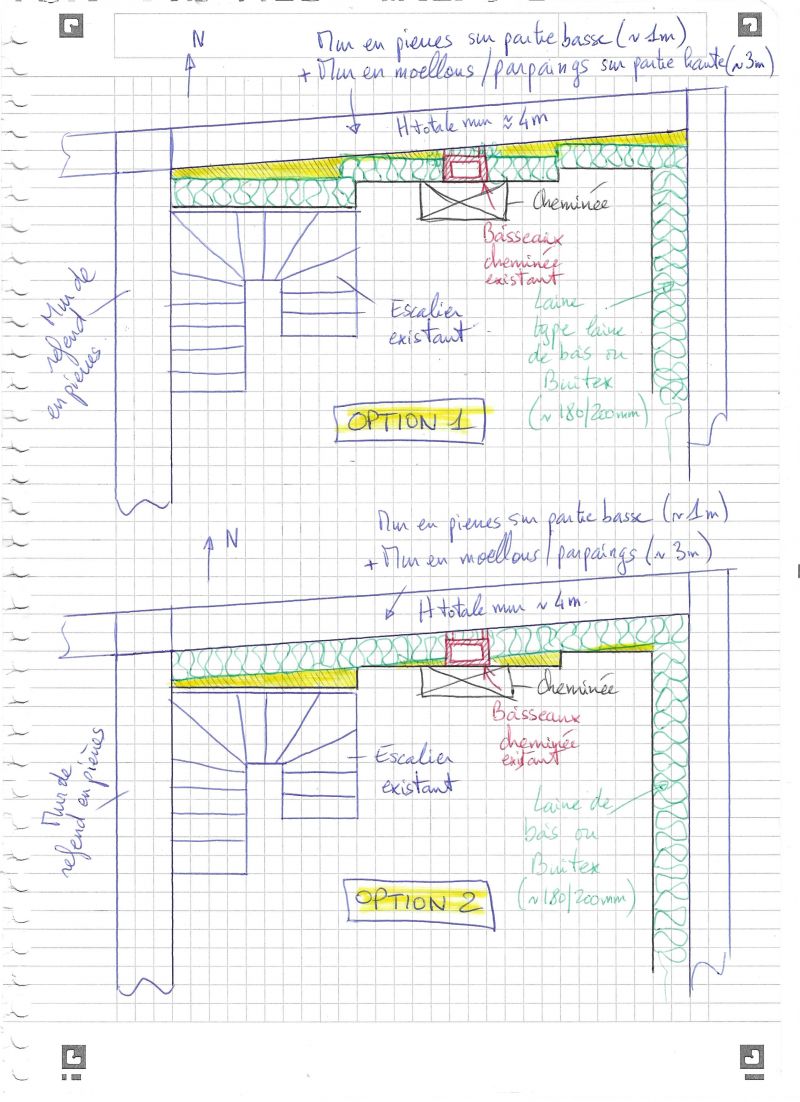 N
Mur en pierres sur partie basse (~1m)
+ Mur en moellons/parpaings sur partie haute (~3m)
H totale mur ≈ 4m
Cheminée
Boisseaux
cheminée
existant
Mur de
refend
en pierres
Escalier
existant
Laine
type laine
de bois ou
Buitex
(~180/200mm)
OPTION 1
N
Mur en pierres sur partie basse (~1m)
+ Mur en moellons/parpaings (~3m)
H totale mur ~ 4m.
Cheminée
Boisseaux
cheminée
existant
Mur de
refend en pierres
Escalier
existant
Laine de
bois ou
Buitex
(~180/200mm)
OPTION 2